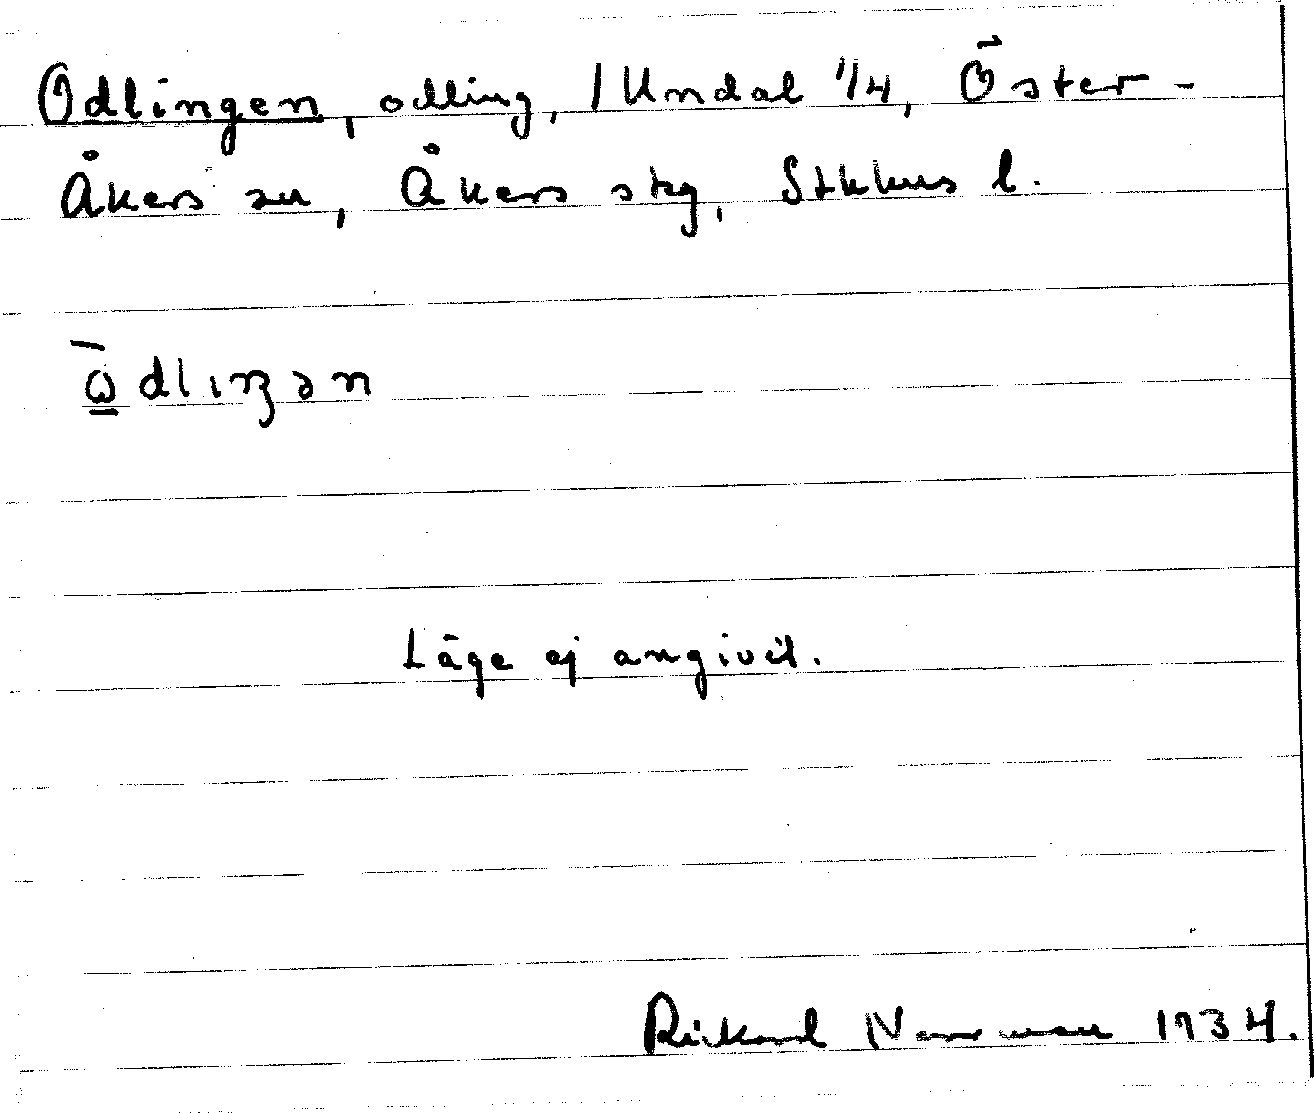 Odlingen, odling, / Undal 1/4, Öster-
Åkers sn, Åkers skg, Stkhus l.
ω̱̄dlıŋən
Läge ej angivet.
Rickard Norrman 1934.